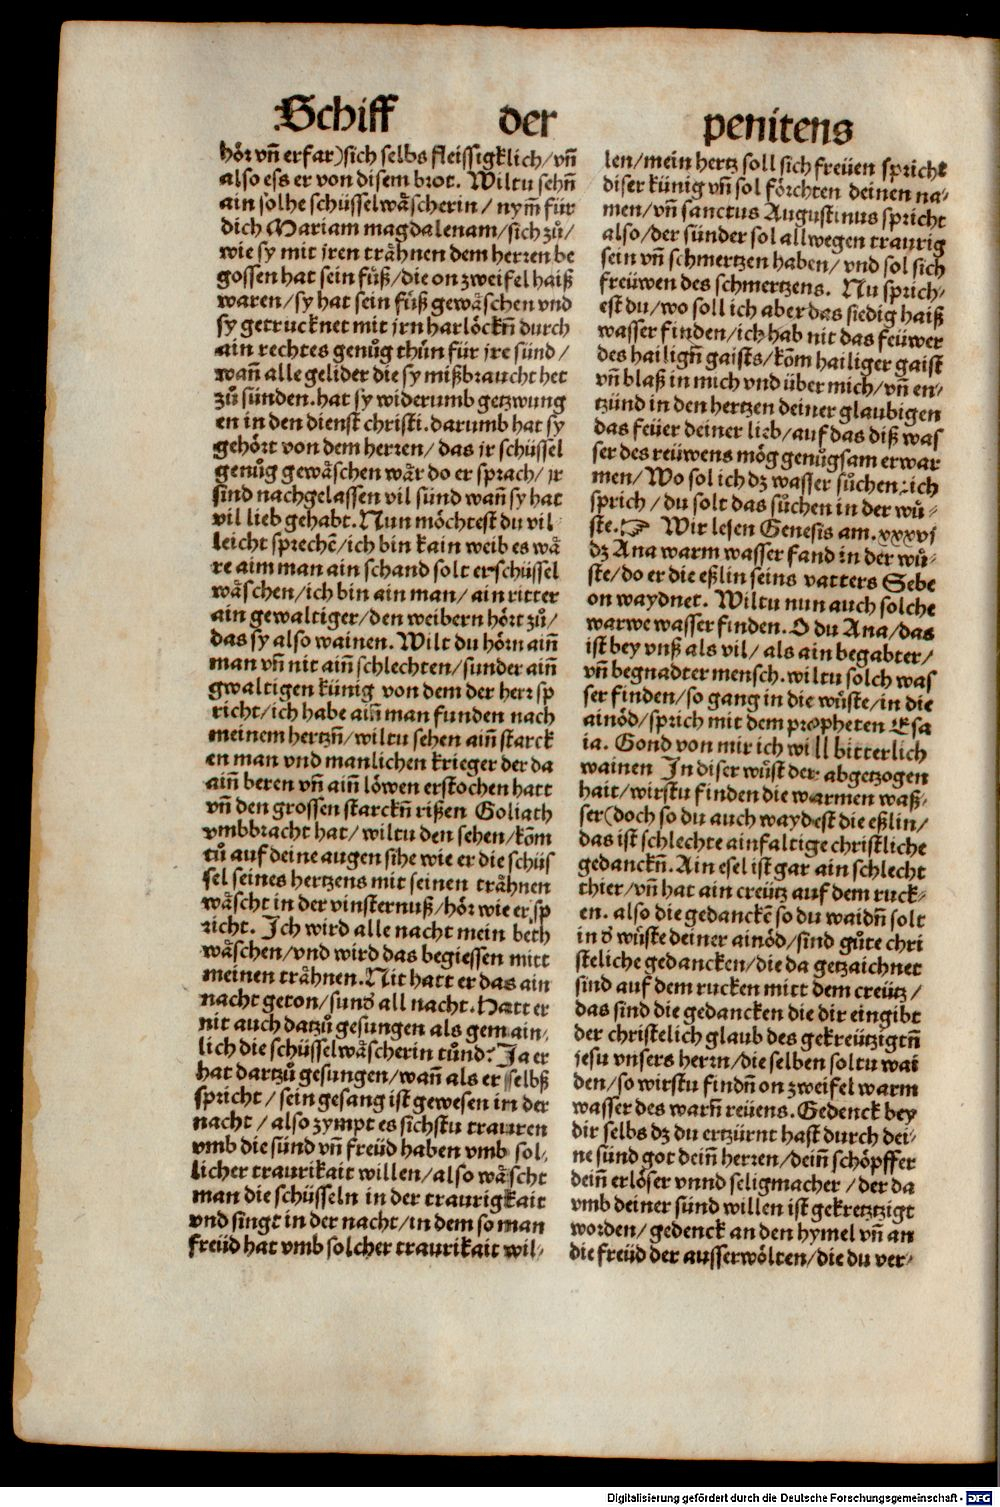 Schiff der penitens
hör vñ erfar) sich selbs fleissigklich/ vñ
also ess er von disem brot. Wiltu sehñ
ain solhe schüsselwäscherin / nym̃ für
dich Mariam magdalenam/ sich zů/
wie sy mit jren trähnen dem herren be
gossen hat sein füß/ die on zweifel haiß
waren/ sy hat sein füß gewäschen vnd
sy getrucknet mit jrn harlöckñ durch
ain rechtes genůg thůn für jre sünd/
wañ alle gelider die sy mißbraucht het
zů sünden. hat sy widerumb getzwung
en in den dienst christi. darumb hat sy
gehört von dem herren/ das jr schüssel
genůg gewäschen wär do er sprach/ jr
sind nachgelassen vil sünd wañ sy hat
vil lieb gehabt. Nun möchtest du vil
leicht sprechẽ/ ich bin kain weib es wä
re aim man ain schand solt er schüssel
wäschen/ ich bin ain man/ ain ritter
ain gewaltiger/ den weibern hört zů/
das sy also wainen. Wilt du hörn aiñ
man vñ nit aiñ schlechten/ sunder aiñ
gwaltigen künig von dem der herr sp
richt/ ich habe aiñ man funden nach
meinem hertzñ/ wiltu sehen aiñ starck
en man vnd manlichen krieger der da
aiñ beren vñ aiñ löwen erstochen hatt
vñ den grossen starckñ rißen Goliath
vmbbracht hat/ wiltu den sehen/ kõm
tů auf deine augen sihe wie er die schüs
sel seines hertzens mit seinen trähnen
wäscht in der vinsternuß/ hör wie er sp
richt. Ich wird alle nacht mein beth
wäschen/ vnd wird das begiessen mitt
meinen trähnen. Nit hatt er das ain
nacht geton/ sund̕ all nacht. Hatt er
nit auch datzů gesungen als gemain/
lich die schüsselwäscherin tůnd? Ja er
hat dartzů gesungen/ wañ als er selbß
spricht / sein gesang ist gewesen in der
nacht / also zympt es sich stu trauren
vmb die sünd vñ freüd haben vmb sol/
licher traurikait willen/ also wäscht
man die schüsseln in der traurigkait
vnd singt in der nacht/ in dem so man
freüd hat vmb solcher traurikait wil/
len/ mein hertz soll sich freüen spricht
diser künig vñ sol förchten deinen na/
men/ vñ sanctus Augustinus spricht
also/ der sünder sol allwegen traurig
sein vñ schmertzen haben/ vnd sol sich
freüwen des schmertzens. Nu sprich/
est du/ wo soll ich aber das siedig haiß
wasser finden/ ich hab nit das feüwer
des hailigñ gaists/ kõm hailiger gaist
vñ blaß in mich vnd über mich/ vñ en/
tzünd in den hertzen deiner glaubigen
das feüer deiner lieb/ auf das diß was
ser des reüwens mög genůgsam erwar
men/ Wo sol ich dz wasser sůchen: ich
sprich / du solt das sůchen in der wů/
ste. ☞ Wir lesen Genesis am. xxxvj
dz Ana warm wasser fand in der wů/
ste/ do er die eßlin seins vatters Sebe
on waydnet. Wiltu nun auch solche
warwe wasser finden. O du Ana/ das
ist bey vnß als vil/ als ain begabter/
vñ begnadter mensch. wiltu solch was
ser finden/ so gang in die wůste/ in die
ainöd/ sprich mit dem propheten Esa
ia. Gond von mir ich will bitterlich
wainen In diser wůst der abgetzogen
hait/ wirstu finden die warmen waß/
ser (doch so du auch waydest die eßlin/
das ist schlechte ainfaltige christliche
gedanckñ. Ain esel ist gar ain schlecht
thier/ vñ hat ain creütz auf dem ruck/
en. also die gedanckẽ so du waidñ solt
in d̕ wůste deiner ainöd/ sind gůte chri
steliche gedancken/ die da getzaichnet
sind auf dem rucken mitt dem creütz/
das sind die gedancken die dir eingibt
der christelich glaub des gekreützigtñ
jesu vnsers herrn/ die selben soltu wai
den/ so wirstu findñ on zweifel warm
wasser des warñ reüens. Gedenck bey
dir selbs dz du ertzürnt hast durch dei/
ne sünd got deiñ herren/ deiñ schöpffer
deiñ erlöser vnnd seligmacher / der da
vmb deiner sünd willen ist gekretztzigt
worden/ gedenck an den hymel vñ an
die freüd der ausserwölten/ die du ver/
Digitalisierung gefördert durch die Deutsche Forschungsgemeinschaft - DFG